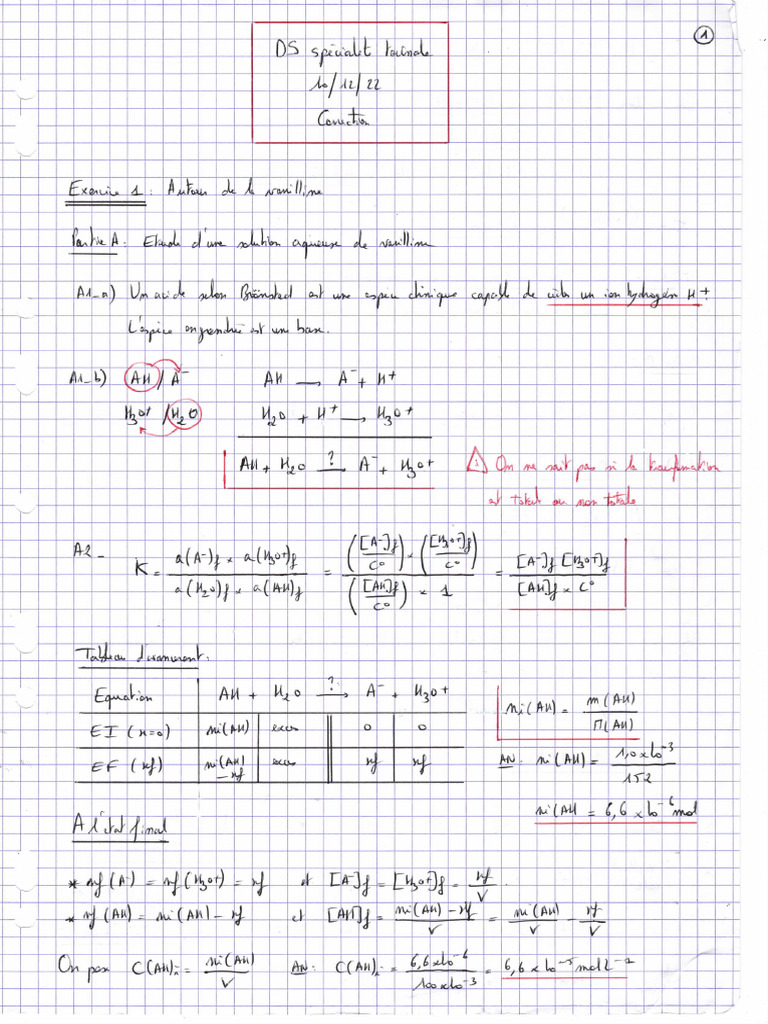 1
DS spécialité terminale
10/12/22
Correction
Exercice 1 : Autour de la vanilline
Partie A : Etude d'une solution aqueuse de vanilline
A1_a) Un acide selon Brönsted est une espèce chimique capable de céder un ion hydrogène H+.
L'espèce engendrée est une base.
A1_b) AH / A⁻ AH → A⁻ + H⁺
H₃O⁺ / H₂O H₂O + H⁺ → H₃O⁺
AH + H₂O →? A⁻ + H₃O⁺ ⚠ On ne sait pas si la transformation
est totale ou non totale
A2_ K = a(A⁻)f × a(H₃O⁺)f / a(H₂O)f × a(AH)f = ([A⁻]f/C°) × ([H₃O⁺]f/C°) / ([AH]f/C°) × 1 = [A⁻]f [H₃O⁺]f / [AH]f × C°
Tableau d'avancement :
Equation AH + H₂O →? A⁻ + H₃O⁺
EI (x=0) ni(AH) excès 0 0
EF (xf) ni(AH) - xf excès xf xf
ni(AH) = m(AH) / M(AH)
AN : ni(AH) = 1,0×10⁻³ / 152
ni(AH = 6,6 × 10⁻⁶ mol
A l'état final
* nf(A⁻) = nf(H₃O⁺) = xf et [A⁻]f = [H₃O⁺]f = xf / V .
* nf(AH) = ni(AH) - xf et [AH]f = ni(AH) - xf / V = ni(AH) / V - xf / V
On pose C(AH)i = ni(AH) / V AN : C(AH)i = 6,6×10⁻⁶ / 100×10⁻³ = 6,6 × 10⁻⁵ mol L⁻¹